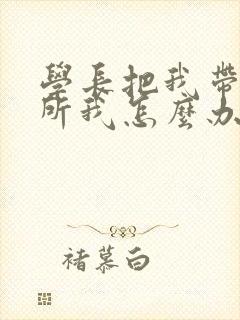 學長把我帶
所我怎麼办
褚慕白